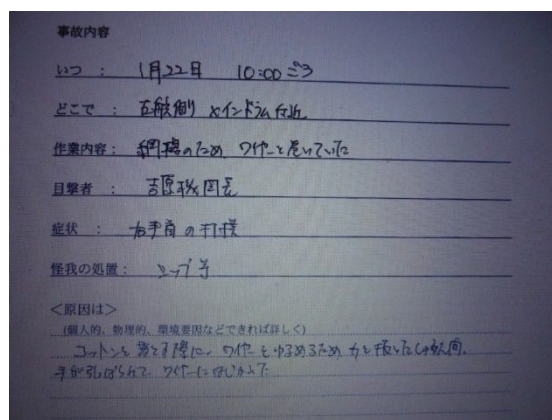 事故内容
いつ : 1月22日 10:00ごろ
どこで : 右舷側 メインドラム付近
作業内容: 網揚のため、ワイヤーを巻いていた
目撃者 : 吉原機関長
症状 : 右手首の打撲
怪我の処置: シップ等
<原因は>
(個人的、物理的、環境要因などできれば詳しく)
コットンを 際に、ワイヤーをゆるめるため 力を抜いたしゅん間、
手が引っぱられて ワイヤーにはじかれた